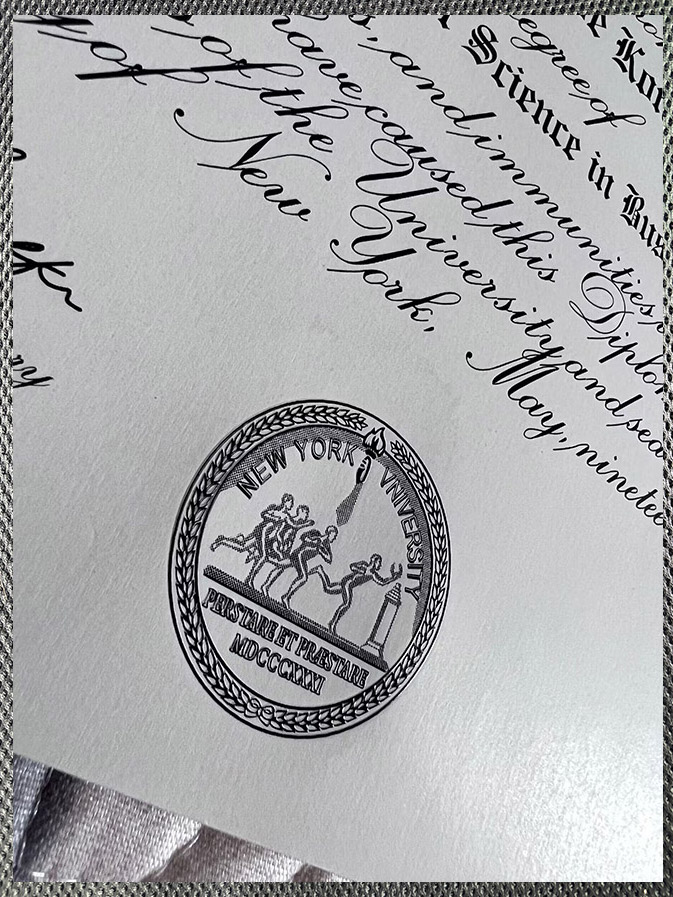 egree of
Science in Bus
, and immunities
have caused this Diplom
of the University and sea
New York, May, ninetee
NEW YORK VNIVERSITY
PERSTARE ET PRÆSTARE
MDCCCXXXI